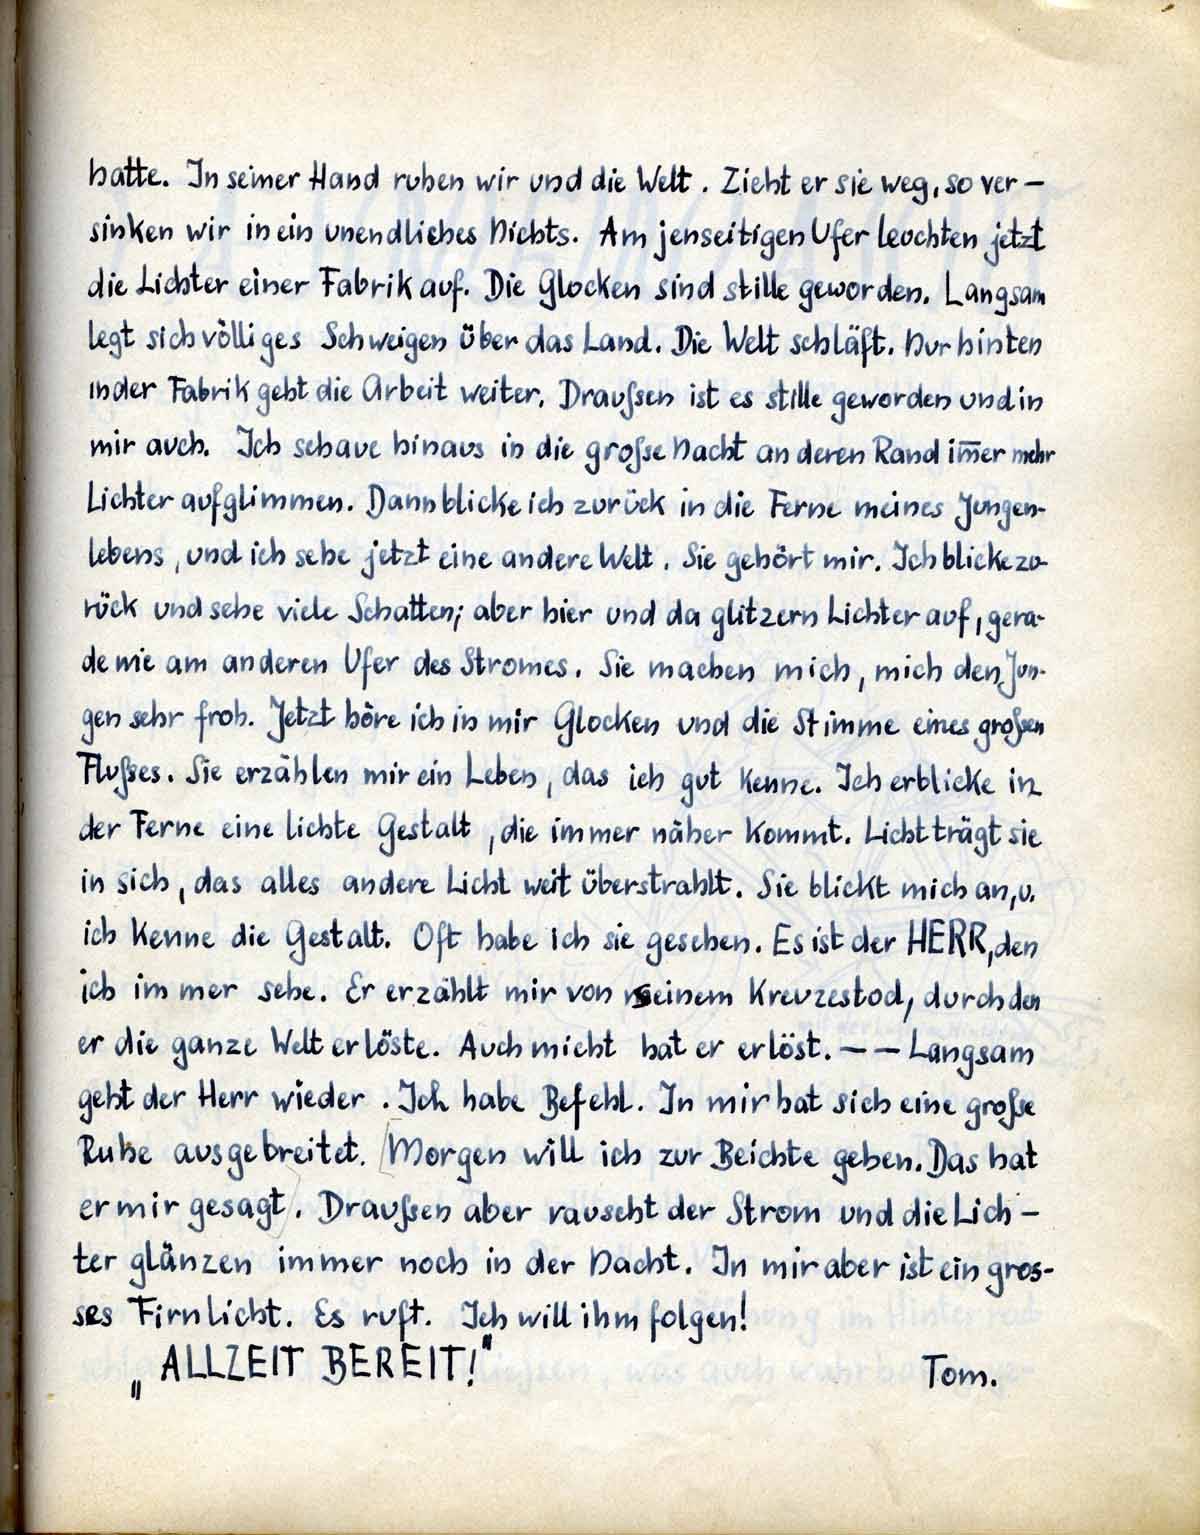 hatte. In seiner Hand ruhen wir und die Welt. Zieht er sie weg, so ver-
sinken wir in ein unendliches Nichts. Am jenseitigen Ufer leuchten jetzt
die Lichter einer Fabrik auf. Die Glocken sind stille geworden. Langsam
legt sich völliges Schweigen über das Land. Die Welt schläft. Nur hinten
in der Fabrik geht die Arbeit weiter. Draußen ist es stille geworden und in
mir auch. Ich schaue hinaus in die große Nacht an deren Rand im̅er mehr
Lichter aufglimmen. Dann blicke ich zurück in die Ferne meines Jungen-
lebens, und ich sehe jetzt eine andere Welt. Sie gehört mir. Ich blicke zu-
rück und sehe viele Schatten; aber hier und da glitzern Lichter auf, gera-
de wie am anderen Ufer des Stromes. Sie machen mich, mich den Jun-
gen sehr froh. Jetzt höre ich in mir Glocken und die Stimme eines großen
Flußes. Sie erzählen mir ein Leben, das ich gut kenne. Ich erblicke in
der Ferne eine lichte Gestalt, die immer näher kommt. Licht trägt sie
in sich, das alles andere Licht weit überstrahlt. Sie blickt mich an, u.
ich kenne die Gestalt. Oft habe ich sie gesehen. Es ist der HERR, den
ich immer sehe. Er erzählt mir von seinem Kreuzestod, durch den
er die ganze Welt erlöste. Auch micht hat er erlöst. — — Langsam
geht der Herr wieder. Ich habe Befehl. In mir hat sich eine große
Ruhe ausgebreitet. [Morgen will ich zur Beichte gehen. Das hat
er mir gesagt]. Draußen aber rauscht der Strom und die Lich-
ter glänzen immer noch in der Nacht. In mir aber ist ein gros-
ses Firnlicht. Es ruft. Ich will ihm folgen!
„ALLZEIT BEREIT!" Tom.